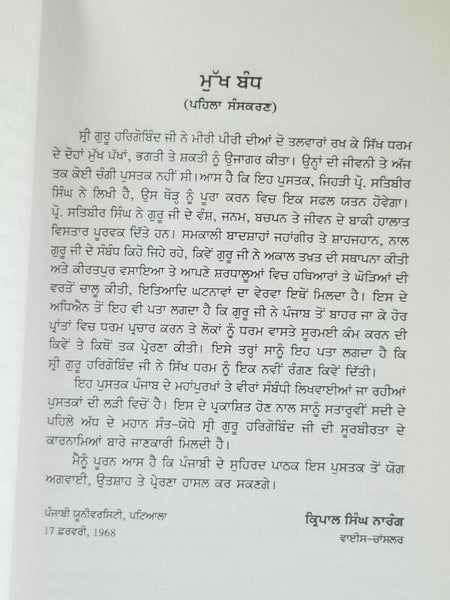 ਮੁੱਖ ਬੰਧ
(ਪਹਿਲਾ ਸੰਸਕਰਣ)
ਸ੍ਰੀ ਗੁਰੂ ਹਰਿਗੋਬਿੰਦ ਜੀ ਨੇ ਮੀਰੀ ਪੀਰੀ ਦੀਆਂ ਦੋ ਤਲਵਾਰਾਂ ਰਖ ਕੇ ਸਿੱਖ ਧਰਮ
ਦੇ ਦੋਹਾਂ ਮੁੱਖ ਪੱਖਾਂ, ਭਗਤੀ ਤੇ ਸ਼ਕਤੀ ਨੂੰ ਉਜਾਗਰ ਕੀਤਾ। ਉਨ੍ਹਾਂ ਦੀ ਜੀਵਨੀ ਤੇ ਅੱਜ
ਤਕ ਕੋਈ ਚੰਗੀ ਪੁਸਤਕ ਨਹੀਂ ਸੀ। ਆਸ ਹੈ ਕਿ ਇਹ ਪੁਸਤਕ, ਜਿਹੜੀ ਪ੍ਰੋ. ਸਤਿਬੀਰ
ਸਿੰਘ ਨੇ ਲਿਖੀ ਹੈ, ਉਸ ਥੋੜ੍ਹ ਨੂੰ ਪੂਰਾ ਕਰਨ ਵਿਚ ਇਕ ਸਫਲ ਯਤਨ ਹੋਵੇਗਾ।
ਪ੍ਰੋ. ਸਤਿਬੀਰ ਸਿੰਘ ਨੇ ਗੁਰੂ ਜੀ ਦੇ ਵੰਸ਼, ਜਨਮ, ਬਚਪਨ ਤੇ ਜੀਵਨ ਦੇ ਬਾਕੀ ਹਾਲਾਤ
ਵਿਸਤਾਰ ਪੂਰਵਕ ਦਿੱਤੇ ਹਨ। ਸਮਕਾਲੀ ਬਾਦਸ਼ਾਹਾਂ ਜਹਾਂਗੀਰ ਤੇ ਸ਼ਾਹਜਹਾਨ, ਨਾਲ
ਗੁਰੂ ਜੀ ਦੇ ਸੰਬੰਧ ਕਿਹੋ ਜਿਹੇ ਰਹੇ, ਕਿਵੇਂ ਗੁਰੂ ਜੀ ਨੇ ਅਕਾਲ ਤਖ਼ਤ ਦੀ ਸਥਾਪਨਾ ਕੀਤੀ
ਅਤੇ ਕੀਰਤਪੁਰ ਵਸਾਇਆ ਤੇ ਆਪਣੇ ਸ਼ਰਧਾਲੂਆਂ ਵਿਚ ਹਥਿਆਰਾਂ ਤੇ ਘੋੜਿਆਂ ਦੀ
ਵਰਤੋਂ ਚਾਲੂ ਕੀਤੀ, ਇਤਿਆਦਿ ਘਟਨਾਵਾਂ ਦਾ ਵੇਰਵਾ ਇਥੋਂ ਮਿਲਦਾ ਹੈ। ਇਸ ਦੇ
ਅਧਿਐਨ ਤੋਂ ਇਹ ਵੀ ਪਤਾ ਲਗਦਾ ਹੈ ਕਿ ਗੁਰੂ ਜੀ ਨੇ ਪੰਜਾਬ ਤੋਂ ਬਾਹਰ ਜਾ ਕੇ ਹੋਰ
ਪ੍ਰਾਂਤਾਂ ਵਿਚ ਧਰਮ ਪ੍ਰਚਾਰ ਕਰਨ ਤੇ ਲੋਕਾਂ ਨੂੰ ਧਰਮ ਵਾਸਤੇ ਸੂਰਮਈ ਕੰਮ ਕਰਨ ਦੀ
ਕਿਵੇਂ ਤੇ ਕਿਥੋਂ ਤਕ ਪ੍ਰੇਰਣਾ ਕੀਤੀ। ਇਸੇ ਤਰ੍ਹਾਂ ਸਾਨੂੰ ਇਹ ਪਤਾ ਲਗਦਾ ਹੈ ਕਿ
ਸ੍ਰੀ ਗੁਰੂ ਹਰਿਗੋਬਿੰਦ ਜੀ ਨੇ ਸਿੱਖ ਧਰਮ ਨੂੰ ਇਕ ਨਵੀਂ ਰੰਗਣ ਕਿਵੇਂ ਦਿੱਤੀ।
ਇਹ ਪੁਸਤਕ ਪੰਜਾਬ ਦੇ ਮਹਾਂਪੁਰਖਾਂ ਤੇ ਵੀਰਾਂ ਸੰਬੰਧੀ ਲਿਖਵਾਈਆਂ ਜਾ ਰਹੀਆਂ
ਪੁਸਤਕਾਂ ਦੀ ਲੜੀ ਵਿਚੋਂ ਹੈ। ਇਸ ਦੇ ਪ੍ਰਕਾਸ਼ਿਤ ਹੋਣ ਨਾਲ ਸਾਨੂੰ ਸਤਾਰ੍ਹਵੀਂ ਸਦੀ ਦੇ
ਪਹਿਲੇ ਅੱਧ ਦੇ ਮਹਾਨ ਸੰਤ-ਯੋਧੇ ਸ੍ਰੀ ਗੁਰੂ ਹਰਿਗੋਬਿੰਦ ਜੀ ਦੀ ਸੂਰਬੀਰਤਾ ਦੇ
ਕਾਰਨਾਮਿਆਂ ਬਾਰੇ ਜਾਣਕਾਰੀ ਮਿਲਦੀ ਹੈ।
ਮੈਨੂੰ ਪੂਰਨ ਆਸ ਹੈ ਕਿ ਪੰਜਾਬੀ ਦੇ ਸੁਹਿਰਦ ਪਾਠਕ ਇਸ ਪੁਸਤਕ ਤੋਂ ਯੋਗ
ਅਗਵਾਈ, ਉਤਸ਼ਾਹ ਤੇ ਪ੍ਰੇਰਣਾ ਹਾਸਲ ਕਰ ਸਕਣਗੇ।
ਪੰਜਾਬੀ ਯੂਨੀਵਰਸਿਟੀ, ਪਟਿਆਲਾ
ਕ੍ਰਿਪਾਲ ਸਿੰਘ ਨਾਰੰਗ
17 ਫ਼ਰਵਰੀ, 1968
ਵਾਈਸ-ਚਾਂਸਲਰ